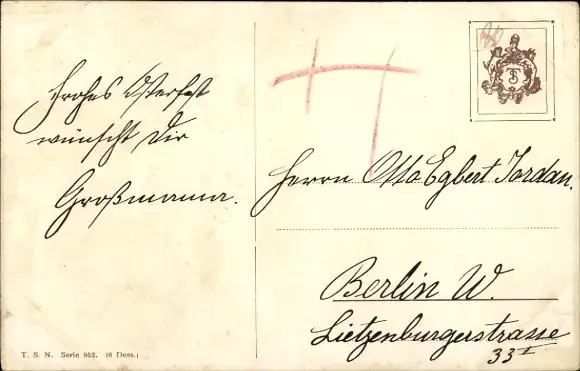 Frohes Osterfest
wünscht Dir
Großmama.
Herrn Otto Egbert Jordan.
Berlin W.
Lietzenburgerstrasse
33 I
T. S. N. Serie 952. (6 Dess.)